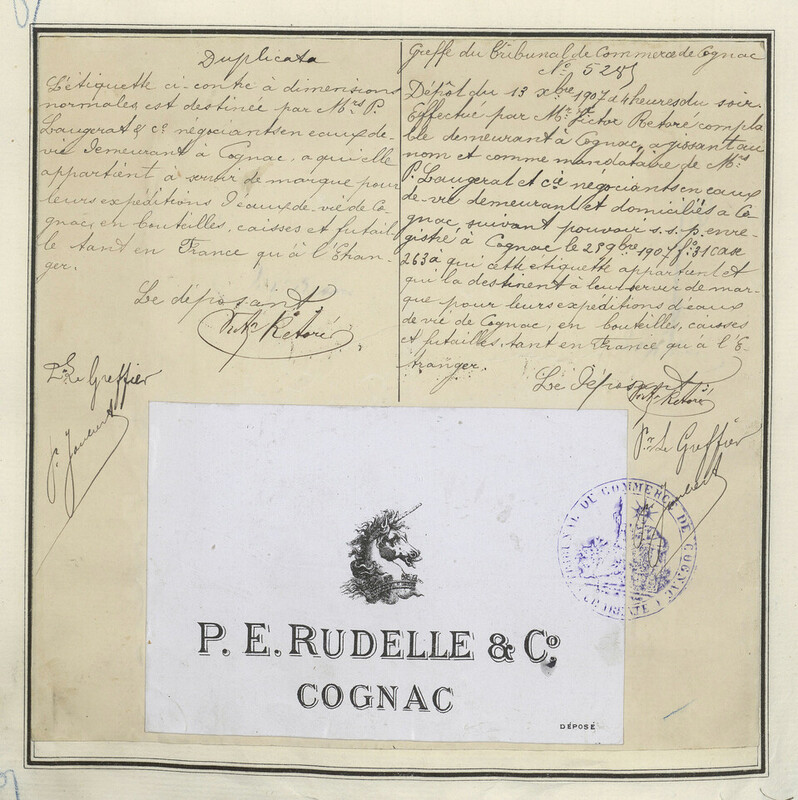 Duplicata
L'étiquette ci-contre à dimensions
normales est destinée par Mrs P.
Laugerat & Cie négociants en eaux de-
vie demeurant à Cognac, a qui elle
appartient, à servir de marque pour
leurs expéditions d'eaux de vie de Co-
gnac, en bouteilles, caisses et futail-
le tant en France qu'à l'Etran-
ger.
Le déposant
Vtor Retoré
Pr Le Greffier
Greffe du Tribunal de Commerce de Cognac
No 5285
Dépôt du 13 Xbre 1907 à 4 heures du soir
Effectué par Mr Victor Retoré compta
ble demeurant à Cognac, agissant au
nom et comme mandataire de Mrs
P. Laugerat et Cie négociants en eaux
de-vie demeurant et domiciliés à Co
gnac suivant pouvoir s.s.p. enre-
gistré à Cognac le 25 9bre 1907 fo 31 case
263 à qui cette étiquette appartient et
qui la destinent à leur servir de mar-
que pour leurs expéditions d'eaux
de vie de Cognac, en bouteilles, caisses
et futailles, tant en France qu'à l'E-
tranger.
Le déposant
Vtor Retoré
Pr Le Greffier
TRIBUNAL DE COMMERCE DE COGNAC
CHARENTE
P. E. RUDELLE & Co.
COGNAC
DÉPOSÉ